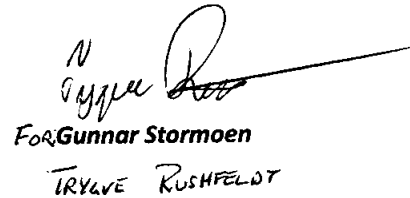 For: Gunnar Stormoen
TRYGVE RUSHFELDT